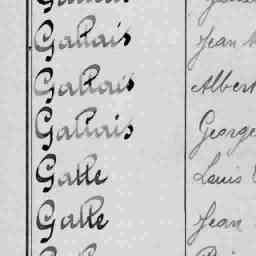 Gallais Jean
Gallais Albert
Gallais George
Galle Louis
Galle Jean